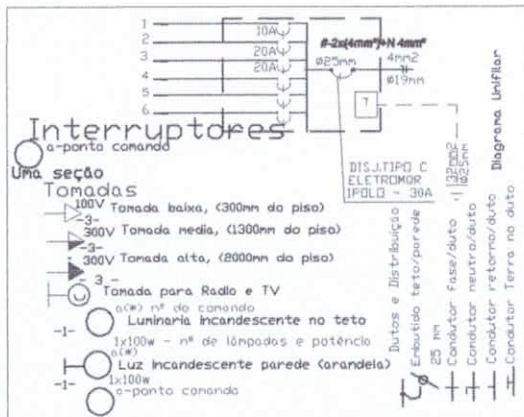 1
2
3
4
5
6
10A
20A
20A
#-2x(4mm²)+N 4mm²
ø25mm
4mm2
ø19mm
?
DISJ.TIPO C
ELETROMOR
1POLO - 30A
Interruptores
a-ponto comando
Uma seção
Tomadas
100V Tomada baixa, (300mm do piso)
-3-
300V Tomada media, (1300mm do piso)
-3-
300V Tomada alta, (2000mm do piso)
- 3 -
Tomada para Radio e TV
a(#) nº do comando
-1- Luminaria incandescente no teto
1x100w - nº de lâmpadas e potência
a(#)
Luz incandescente parede (arandela)
-1- 1x100w
a-ponto comando
Dutos e Distribuição
Embutido teto/parede
25 mm
Condutor fase/duto
Condutor neutro/duto
Condutor retorno/duto
Condutor Terra no duto
ø25mm
Diagrama Unifilar